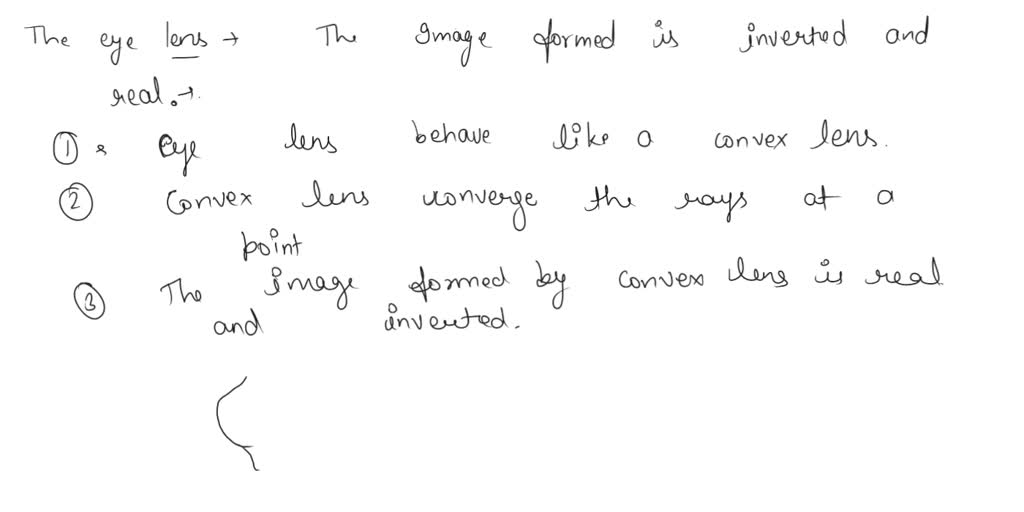 The eye lens → The Image formed is inverted and
real. →
① eye lens behave like a convex lens.
② Convex lens converge the rays at a
point
③ The image formed by convex lens is real
and inverted.